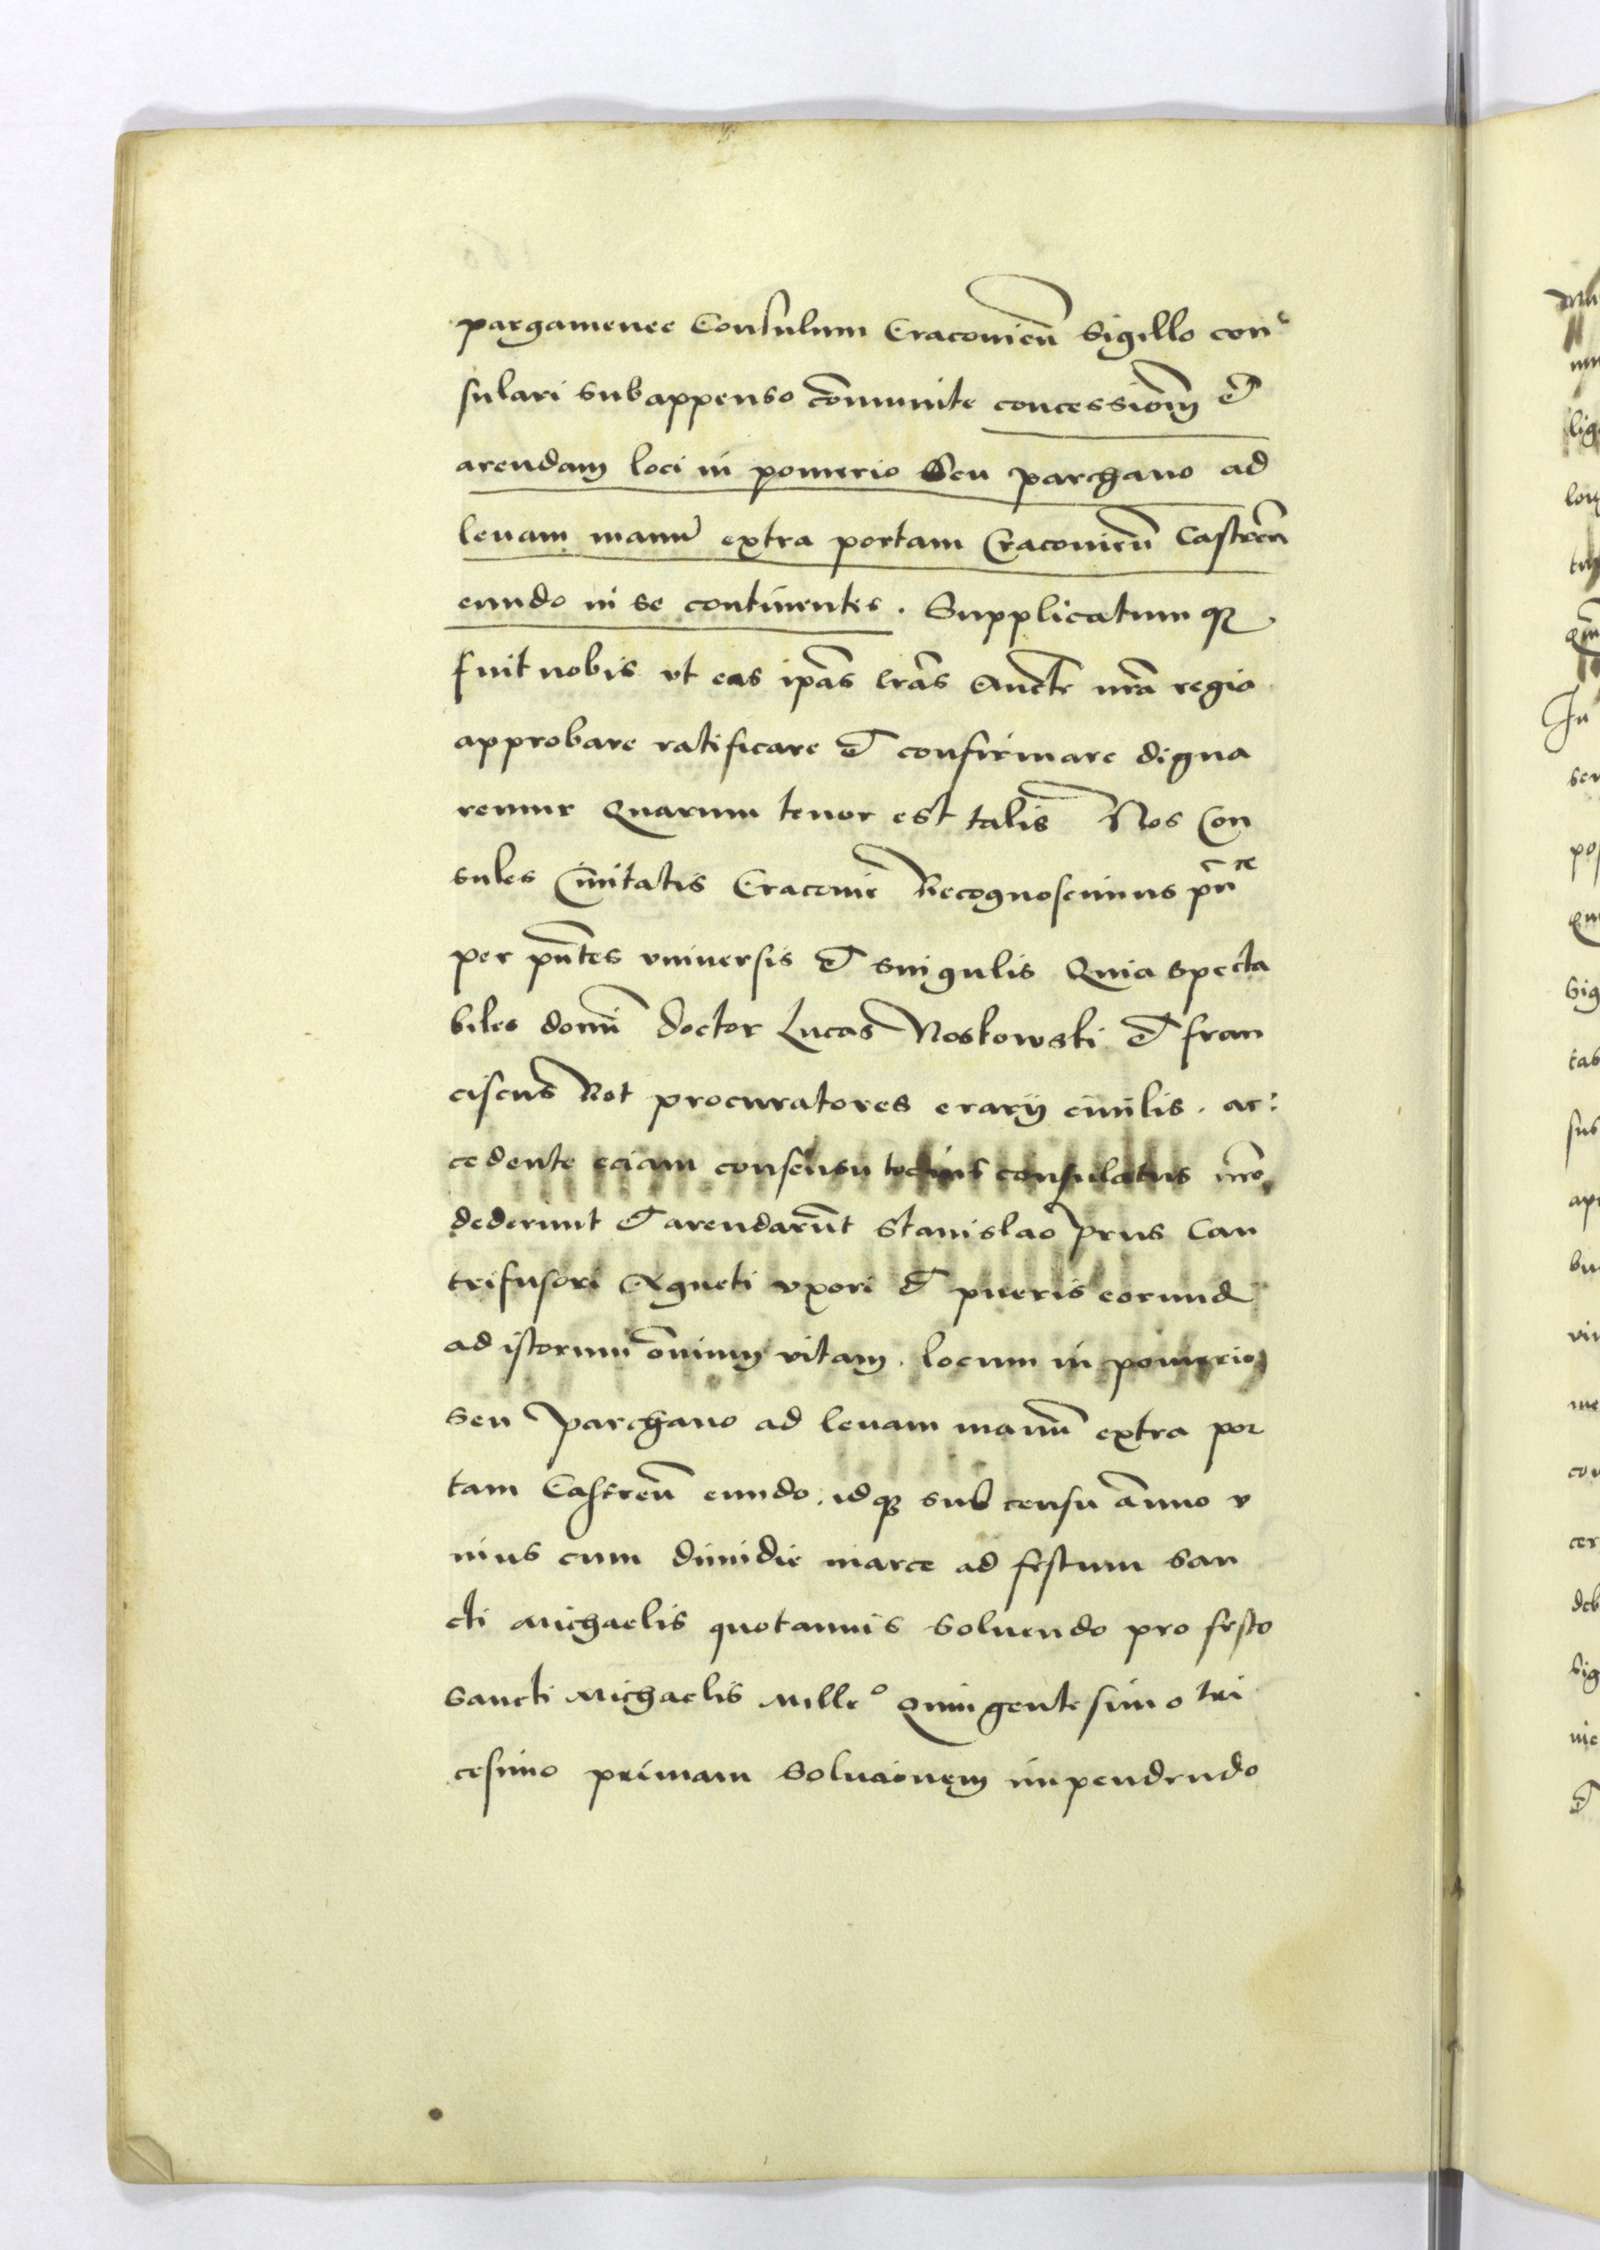 pargamenee Consulum Cracovien̄ Sigillo con
sulari subappenso com̄unite concessionem et
arendam loci in pomerio Seu parchano ad
levam manū extra portam Cracovien̄ Castren̄
eundo in se continentes. Supplicatumqꝫ
fuit nobis vt eas ip̄as lr̄as Auctē nr̄a regia
approbare ratificare et confirmare digna
remur Quarum tenor est talis Nos Con
sules Civitatis Cracovie Recognoscimus pn̄te
per pn̄tes vniversis et singulis Quia specta
biles domi doctor Lucas Noskowski et fran
ciscus Bot procuratores erarij civilis. ac:
cedente eciam consensu tocius consulatus nr̄o
dederunt et arendarūt Stanislao Prus Can
trifusori Agneti vxori et pueris eorund
ad istorum om̄nium vitam. locum in pomerio
Seu parchano ad levam manū extra por
tam Castren̄ eundo. idqꝫ sub censu an̄uo v
nius cum dimidie marce ad festum San
cti Michaelis quotannis Solvendo pro festo
Sancti Michaelis Mille° Quingentesimo tri
cesimo primam Solucionem impendendo